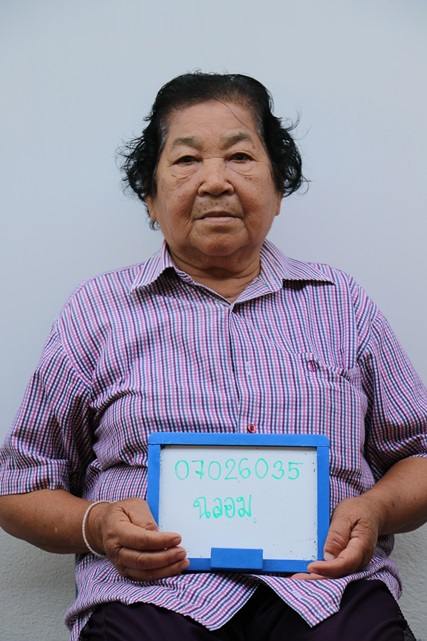 07026035
ฉลอม